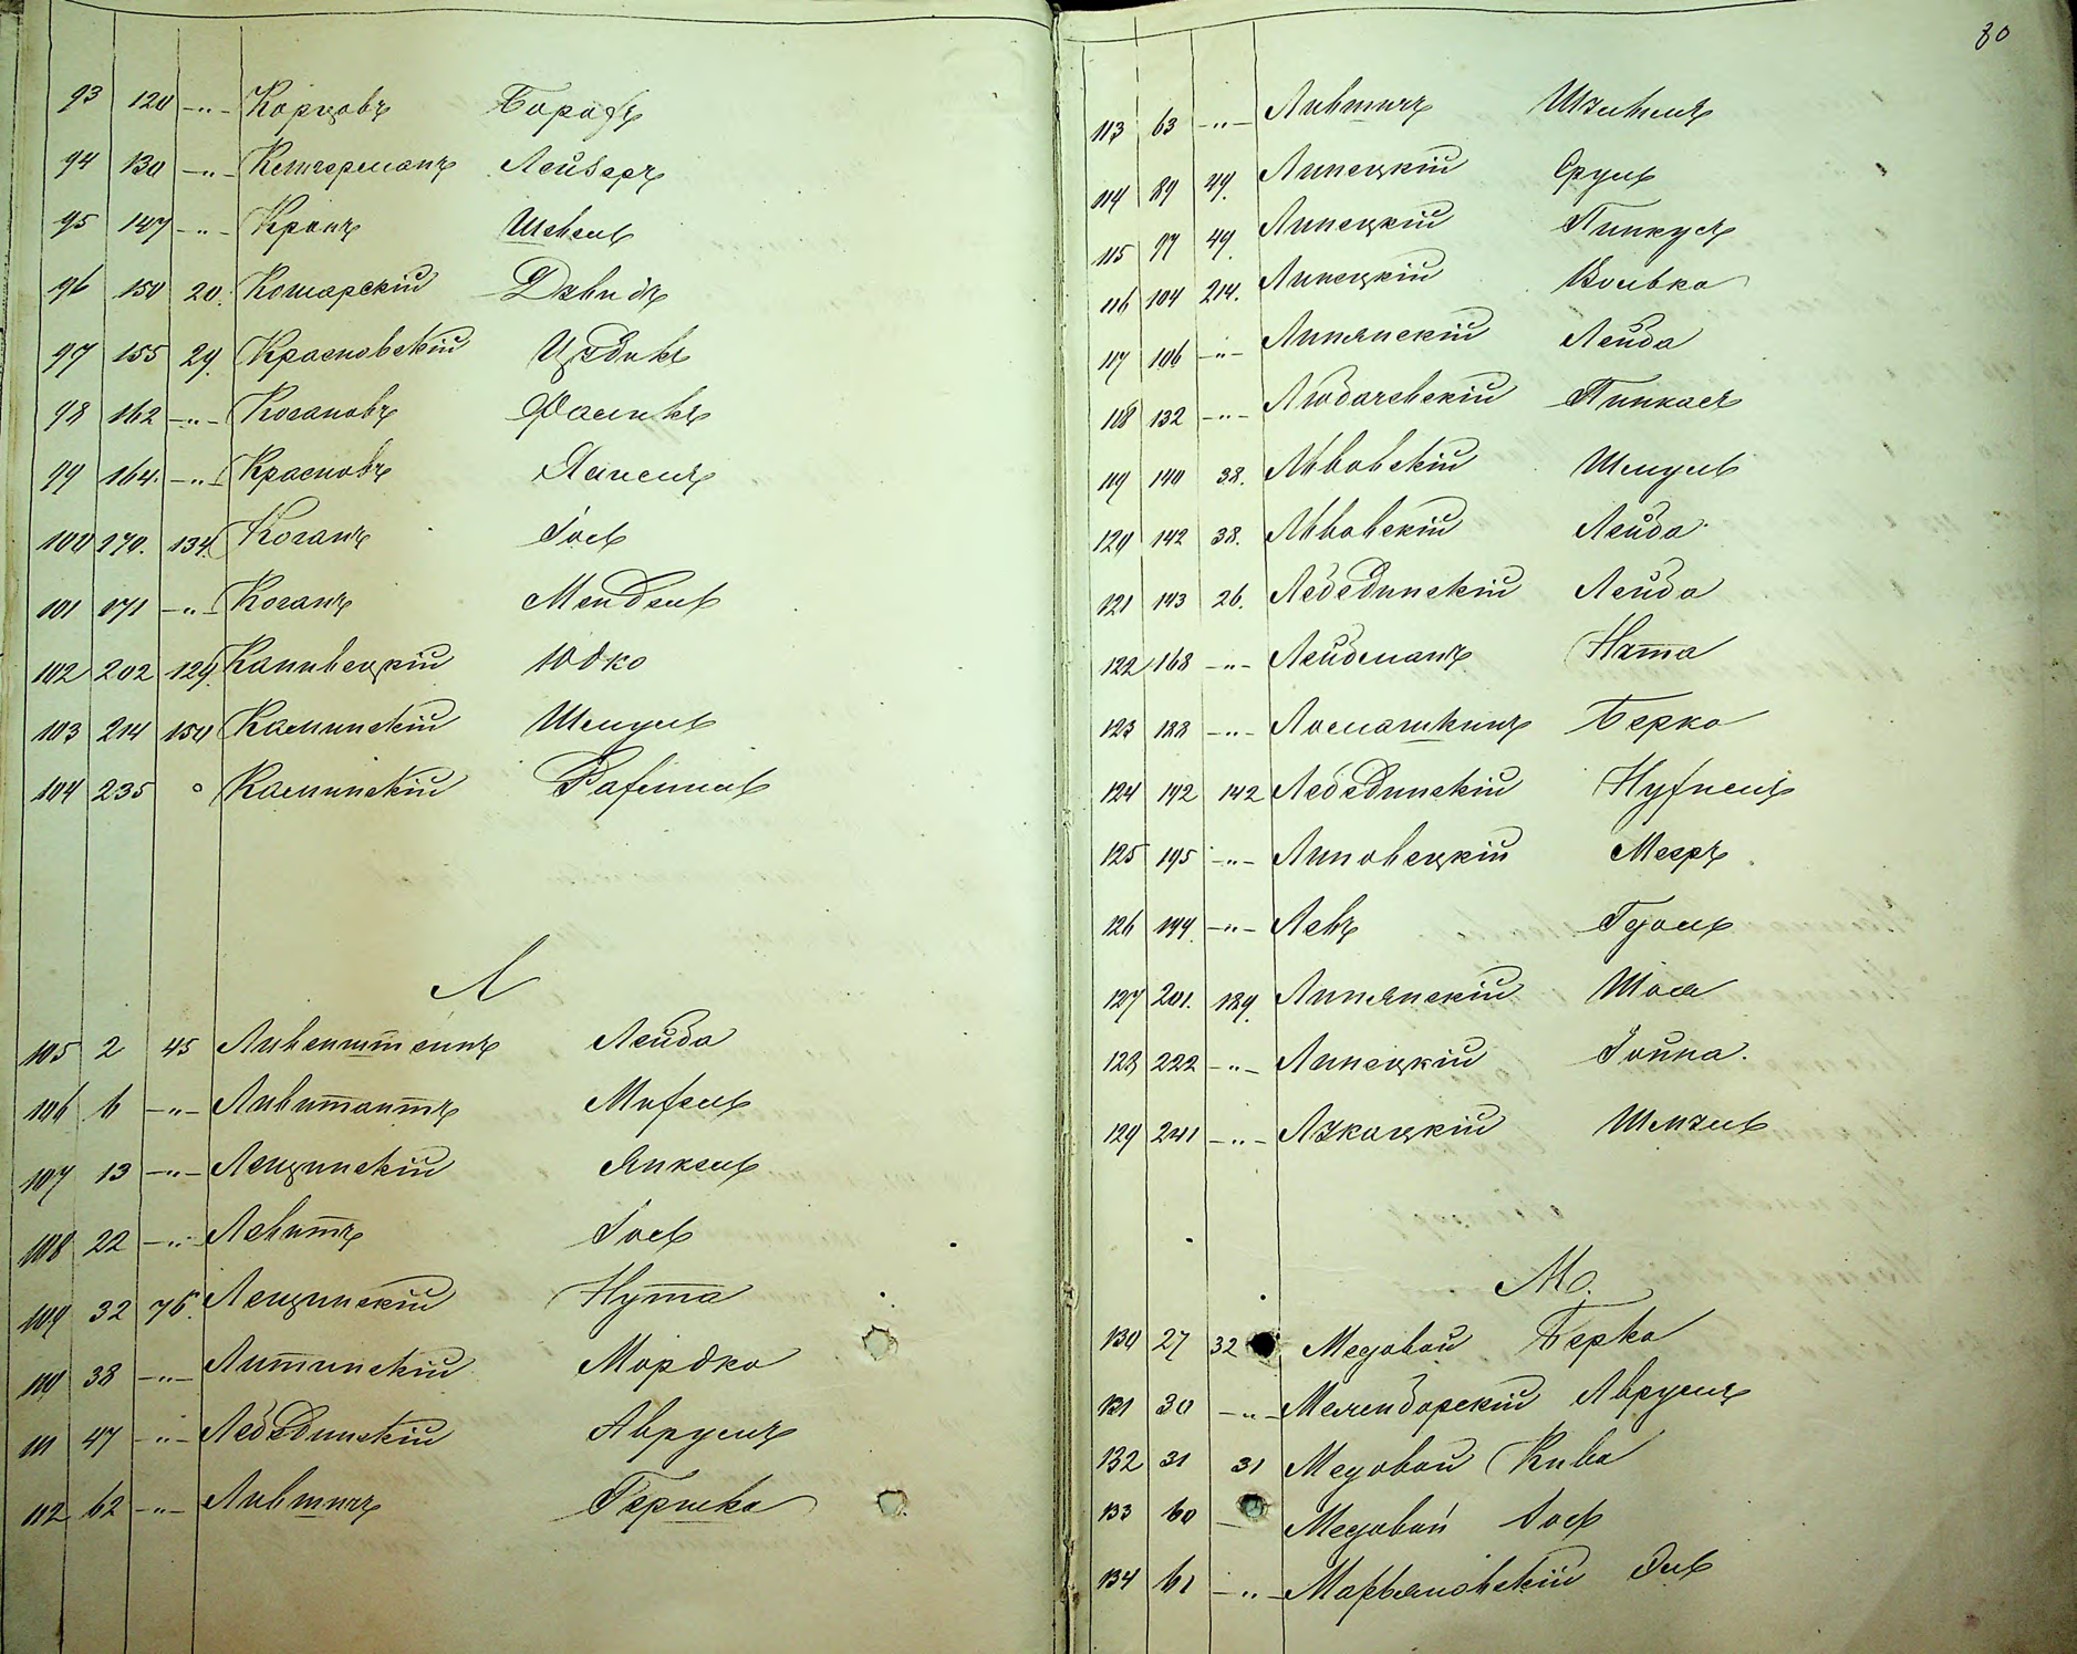 93 120 -"- Корцовъ Борахъ
94 130 -"- Кетчерманъ Лейзеръ
95 147 -"- Кранъ Шевель
96 150 20. Комарскій Давидъ
97 155 29. Красновскій Цадикъ
98 162 -"- Когановъ Фаликъ
99 164. -"- Красновъ Хаимъ
100 170. 134. Коганъ Іось
101 171 -"- Коганъ Мендель
102 202 129. Каневецкій Юдко
103 214 150 Каминскій Шмуль
104 235 Каминскій Рахмиль
Л
105 2 45 Ливенштейнъ Лейба
106 6 -"- Ливитантъ Михель
107 13 -"- Лещинскій Янкель
108 22 -"- Левитъ Іось
109 32 76. Лещинскій Нута
110 38 -"- Литинскій Мордко
111 47 -"- Лебединскій Аврумъ
112 62 -"- Лившицъ Гершко
80
113 63 -"- Лившицъ
114 89 49. Липецкій Сруль
115 97 49. Липецкій Пинкусъ
116 104 214. Липецкій Волько
117 106 -"- Липянскій Лейба
118 132 -"- Любачевскій Пинкасъ
119 140 38. Львовскій Шмуль
120 142 38. Львовскій Лейба
121 143 26. Лебединскій Лейба
122 168 -"- ЛейбманъНата
123 188 -"- Ломашкинъ Берко
124 192 142 Лебединскій Нухимъ
125 195 -"- Липовецкій Мееръ
126 199 -"- Левъ
127 201. 189. Липянскій Шоя
128 222 -"- Липецкій Іойна.
129 241 -"- Лукацкій
М.
130 27 32 Медовой Берко
131 30 -"- Меженборскій Аврумъ
132 31 31 Медовой Кива
133 60 Медовой Іось
134 61 -"- Марьяновскій Эль